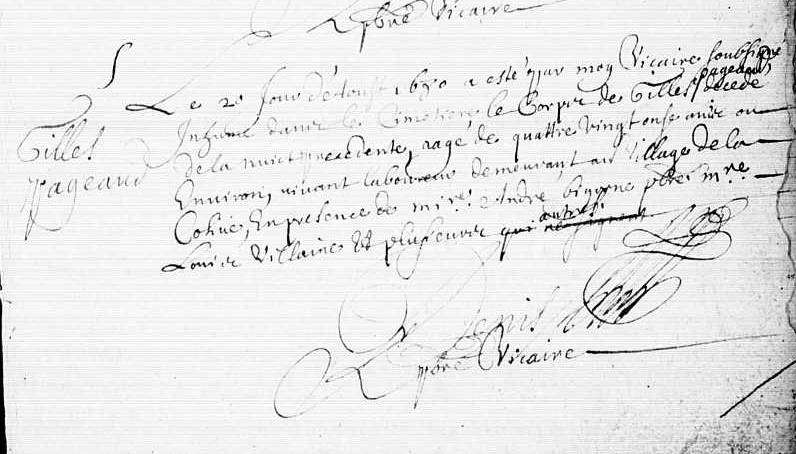 pbre Vicaire
S
Gilles
pageaud
Le 20 Jour d'Aoust 1680 a esté par moy Vicaire soubsigné
Inhumé dans le Cimetiere le Corps de Gilles pageaud decede
de la nuict precedente, aagé de quattre vingt onse anis ou
Environ, vivant laboureur demeurant au Village de la
En presence de mire André pbre mre
Louis Villaine Et plusieurs autres qui ne signent
Denis
pbre Vicaire